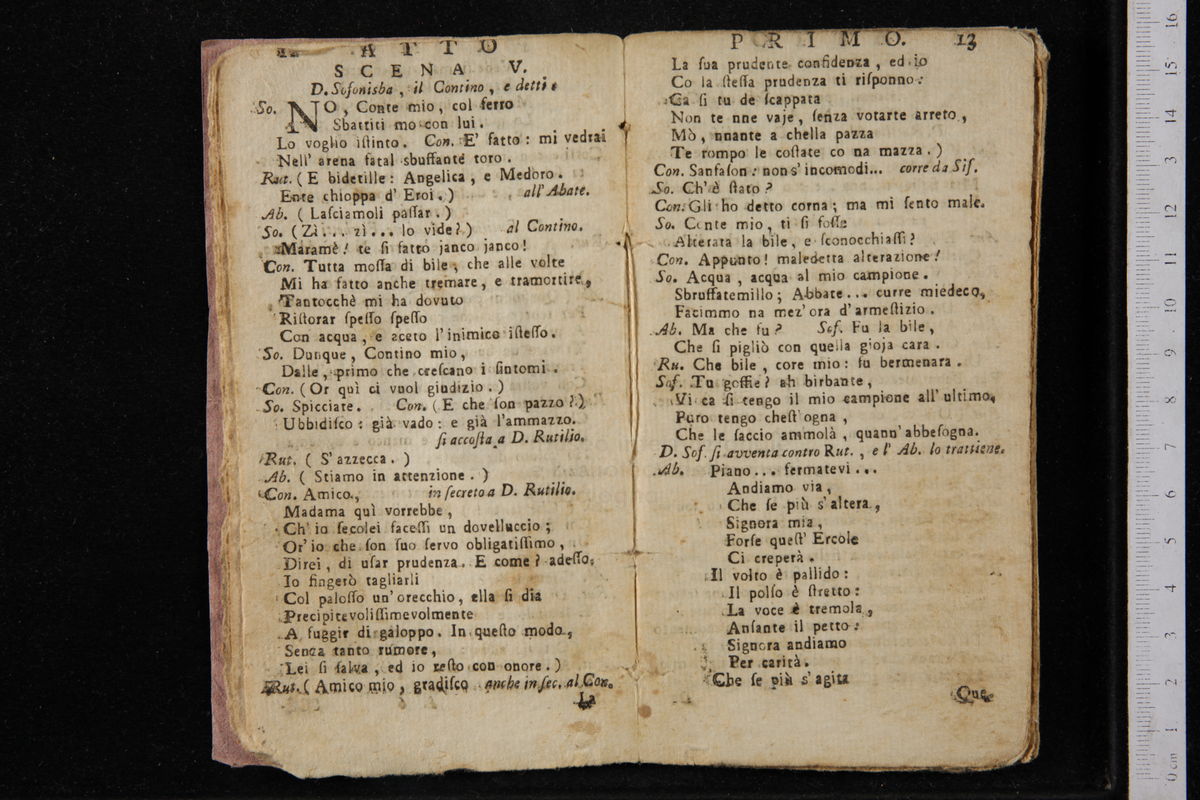 12 A T T O
S C E N A V.
D. Sofonisba, il Contino, e detti.
So. NO, Conte mio, col ferro
Sbattiti mo con lui.
Lo voglio iſtinto. Con. E' fatto: mi vedrai
Nell' arena fatal sbuffante toro.
Rut. (E bidetille: Angelica, e Medoro.
Ente chioppa d' Eroi.) all' Abate.
Ab. (Laſciamoli paſſar.)
So. (Zì... zì... lo vide?) al Contino.
Maramè! te ſi fatto janco janco!
Con. Tutta moſſa di bile, che alle volte
Mi ha fatto anche tremare, e tramortire,
Tantocchè mi ha dovuto
Riſtorar ſpeſſo ſpeſſo
Con acqua, e aceto l'inimico iſteſſo.
So. Dunque, Contino mio,
Dalle, primo che creſcano i ſintomi.
Con. (Or quì ci vuol giudizio.)
So. Spicciate. Con. (E che ſon pazzo?)
Ubbidiſco: già vado: e già l'ammazzo.
ſi accoſta a D. Rutilio.
Rut. (S' azzecca.)
Ab. (Stiamo in attenzione.)
Con. Amico, in ſecreto a D. Rutilio.
Madama quì vorrebbe,
Ch' io ſecolei faceſſi un dovelluccio;
Or' io che ſon ſuo ſervo obligatiſſimo,
Direi, di uſar prudenza. E come? adeſſo,
Io fingerò tagliarli
Col paloſſo un' orecchio, ella ſi dia
Precipitevoliſſimevolmente
A fuggir di galoppo. In queſto modo,
Senza tanto rumore,
Lei ſi ſalva, ed io reſto con onore.)
Rut. (Amico mio, gradiſco anche in ſec. al Con.
La
P R I M O. 13
La ſua prudente confidenza, ed io
Co la ſteſſa prudenza ti riſponno:
Ca ſi tu de ſcappata
Non te nne vaje, ſenza votarte arreto,
Mò, nnante a chella pazza
Te rompo le coſtate co na mazza.)
Con. Sanfaſon: non s' incomodi... corre da Sif.
So. Ch' è ſtato?
Con. Gli ho detto corna; ma mi ſento male.
So. Conte mio, ti ſi foſſe
Alterata la bile, e ſconocchiaſſi?
Con. Appunto! maledetta alterazione!
So. Acqua, acqua al mio campione.
Sbruffatemillo; Abbate... curre miedeco,
Facimmo na mez' ora d' armeſtizio.
Ab. Ma che fu? Sof. Fu la bile,
Che ſi pigliò con quella gioja cara.
Ru. Che bile, core mio: fu bermenara.
Sof. Tu goffie? ah birbante,
Vi ca ſi tengo il mio campione all' ultimo,
Puro tengo cheſt' ogna,
Che le ſaccio ammolà, quann' abbeſogna.
D. Sof. ſi avventa contro Rut., e l' Ab. lo trattiene.
Ab. Piano... fermatevi...
Andiamo via,
Che ſe più s' altera,
Signora mia,
Forſe queſt' Ercole
Ci creperà.
Il volto è pallido:
Il polſo è ſtretto:
La voce è tremola,
Anſante il petto:
Signora andiamo
Per carità.
Che ſe più s' agita
Que.